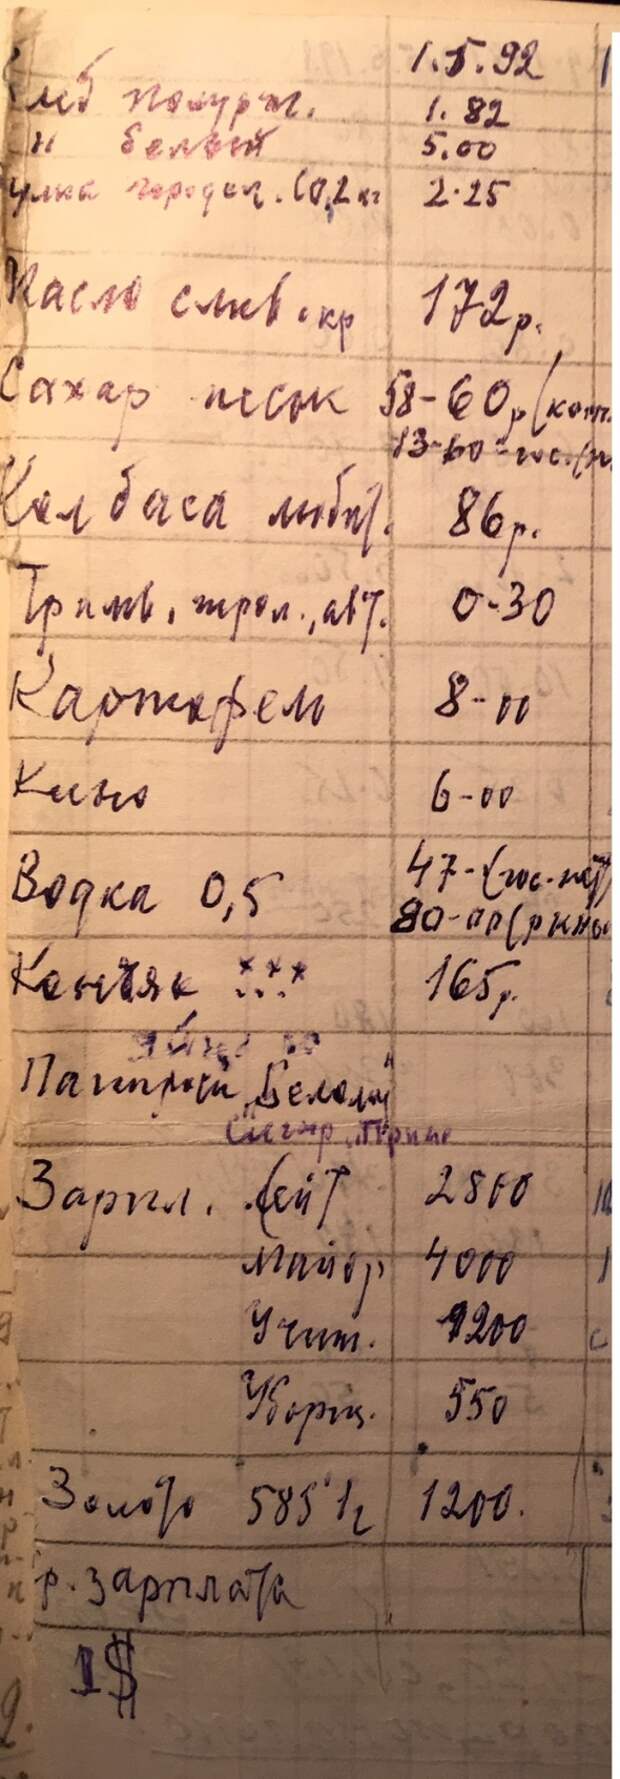 1.5.92
Хлеб полурж. 1.82
" белый 5.00
Булка городск. (0,2 кг 2.25
Масло слив. кр 172 р.
Сахар песок 58-60 р (ком.
13-60 - гос. (
Колбаса любит. 86 р.
Трамв., трол., авт. 0-30
Картофель 8-00
Кино 6-00
Водка 0,5 47- (гос. нет)
80-00 (рынк
Коньяк *** 165 р.
Папиросы "Беломор"
Сигар. "Прима
Зарпл. Лейт 2800
Майор 4000
Учит. 1200
Уборщ. 550
Золото 585° 1 г 1200.
р. зарплата
1$